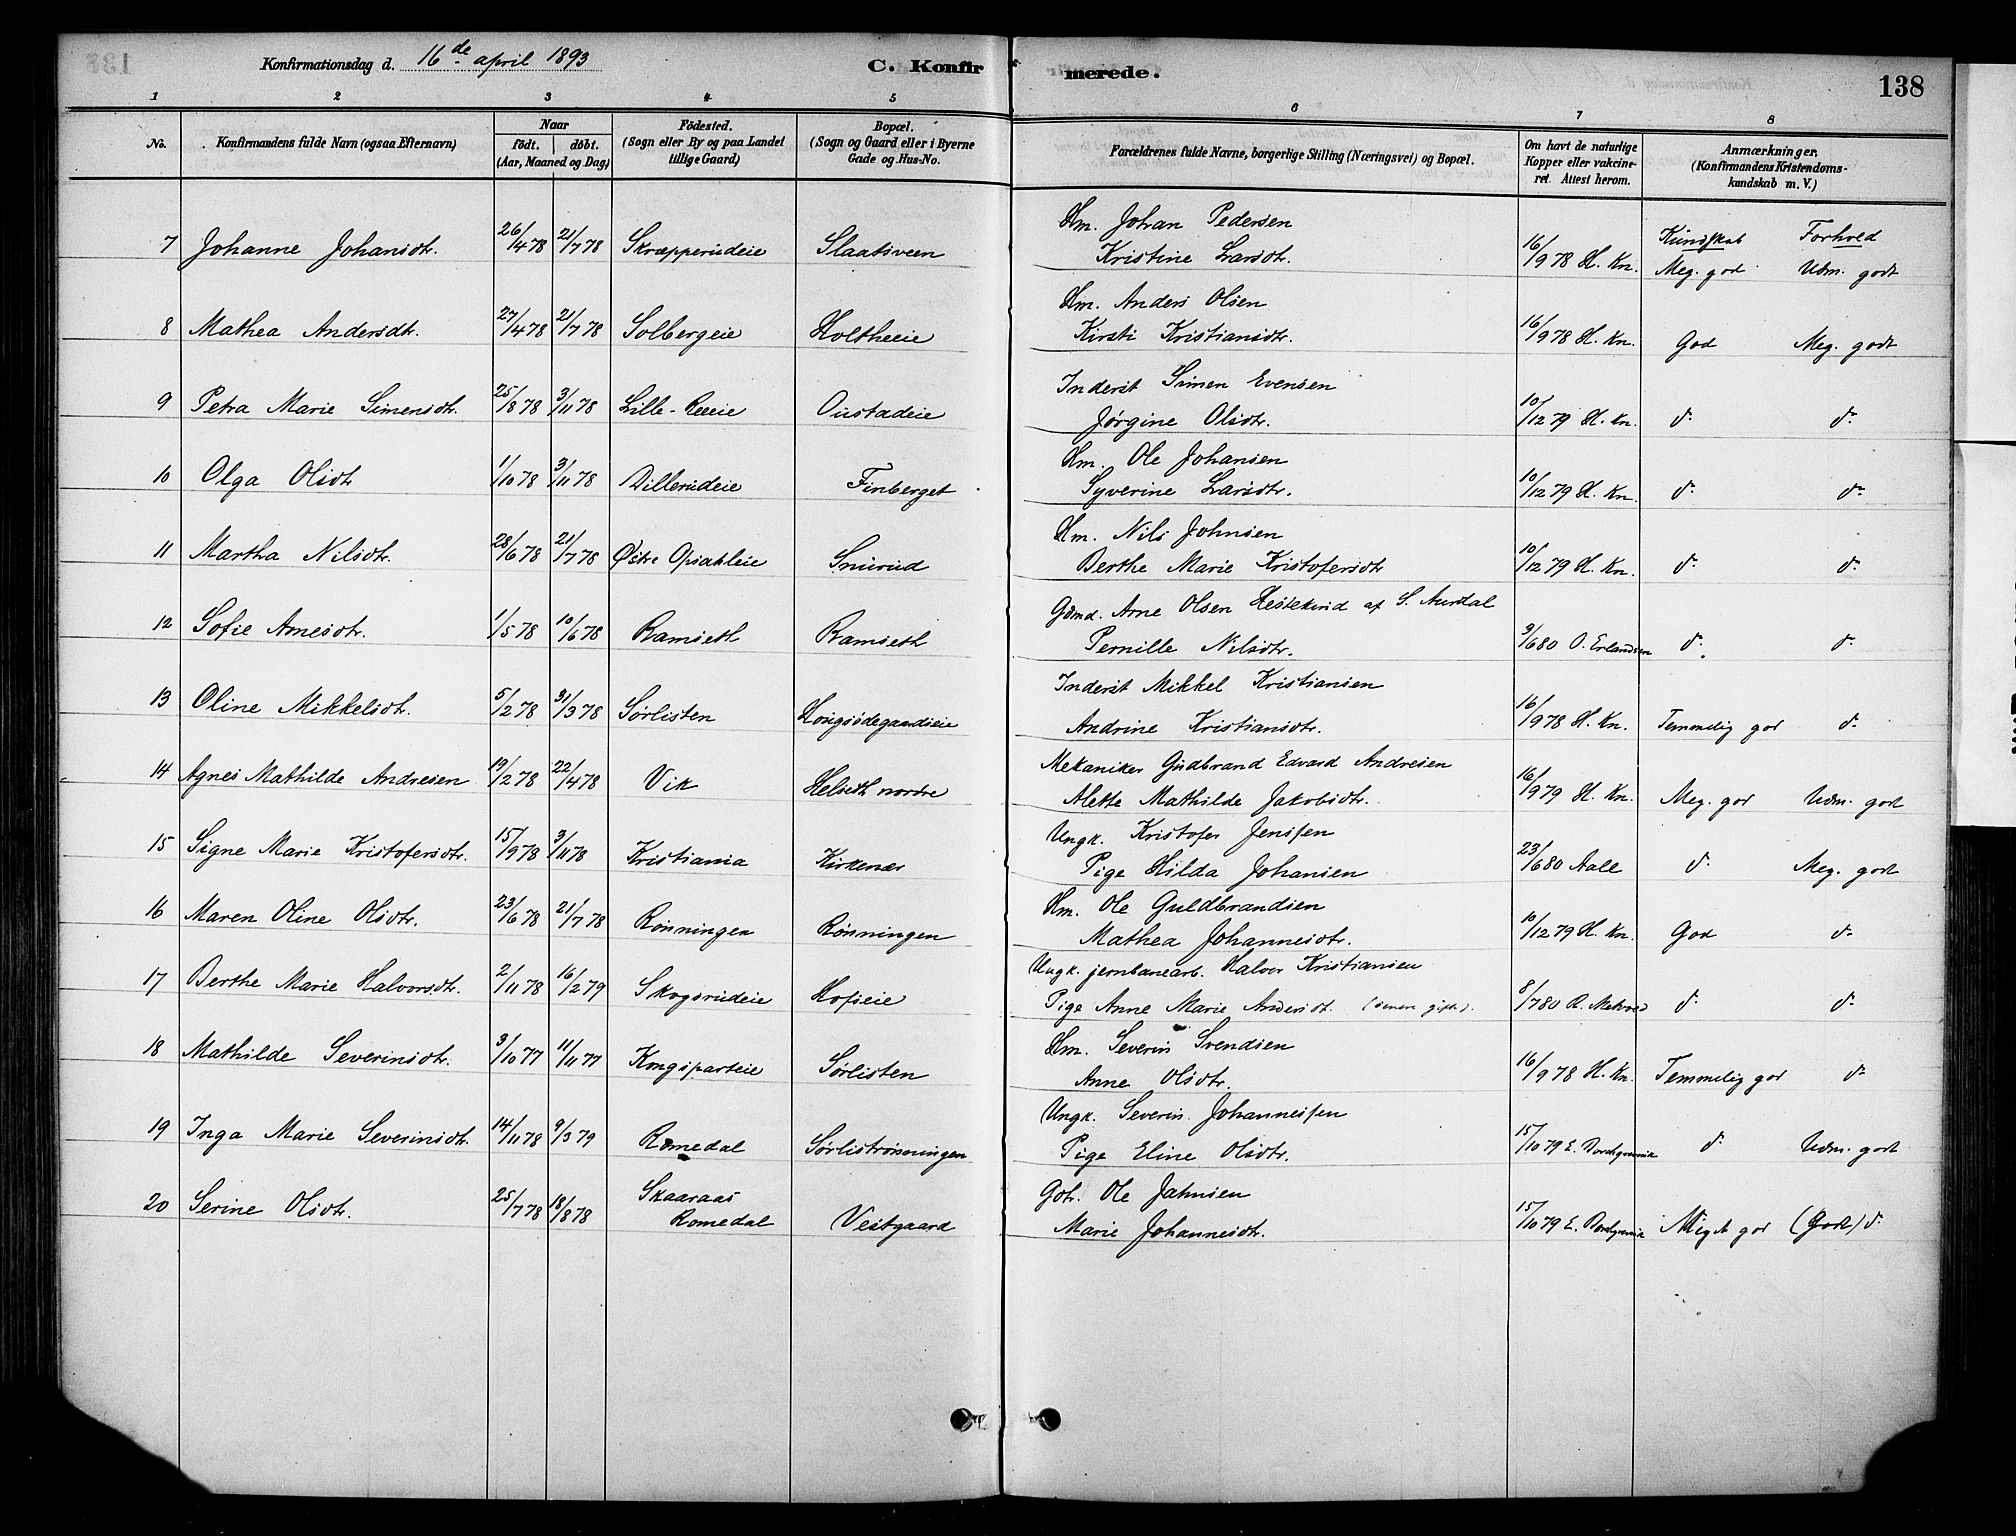 Konfirmationsdag d. 16de april 1893
C. Konfirmerede.
138
1 2 3 4 5 6 7 8
No. Konfirmandens fulde Navn (ogsaa Efternavn) Naar födt. döbt. (Aar, Maaned og Dag) Födested. (Sogn eller By og paa Landet tillige Gaard) Bopæl. (Sogn og Gaard eller i Byerne Gade og Hus-No. Forældrenes fulde Navne, borgerlige Stilling (Næringsvei) og Bopæl. Om havt de naturlige Kopper eller vakcineret. Attest herom. Anmærkninger. (Konfirmandens Kristendomskundskab m. V.)
Kundskab Forhold
7 Johanne Johansdtr. 26/4 78 21/7 78 Skræpperudeie Slaatsveen Hm. Johan Pedersen
Kristine Larsdtr. 16/9 78 H. Kn. Meg. god Udm. godt
8 Mathea Andersdtr. 27/4 78 21/7 78 Solbergeie Holtheeie Hm. Anders Olsen
Kirsti Kristiansdtr. 16/9 78 H. Kn. God Meg. godt
9 Petra Marie Simensdtr. 25/8 78 3/11 78 Lille-Reeie Oustadeie Inderst Simen Evensen
Jørgine Olsdtr. 10/12 79 H. Kn. do do
10 Olga Olsdtr 1/10 78 3/11 78 Dillerudeie Finberget Hm. Ole Johansen
Syverine Larsdtr. 10/12 79 H. Kn. do do
11 Martha Nilsdtr. 28/6 78 21/7 78 Østre Opsahleie Snurud Hm. Nils Johnsen
Berthe Marie Kristofersdtr 10/12 79 H. Kn. do do
12 Sofie Arnesdtr. 1/5 78 10/6 78 Ramseth Ramseth Gdmd. Arne Olsen Hestekind af S. Aurdal
Pernille Nilsdtr. 3/6 80 O. Erlandsen do do
13 Oline Mikkelsdtr. 5/2 78 31/3 78 Sørlisten Hougsødegaardseie Inderst Mikkel Kristiansen
Andrine Kristiansdtr. 16/9 78 H. Kn. Temmelig god do
14 Agnes Mathilde Andresen 19/2 78 22/4 78 Vik Helseth nordre Mekaniker Gudbrand Edvard Andresen
Alette Mathilde Jakobsdtr. 16/9 79 H. Kn. Meg. god Udm. godt
15 Signe Marie Kristofersdtr. 15/9 78 3/11 78 Kristiania Kirkenær Ungk. Kristofer Jensen
Pige Hilda Johansen 23/6 80 Aall do Meg. godt
16 Maren Oline Olsdtr. 23/6 78 21/7 78 Rønningen Rønningen Hm. Ole Guldbrandsen
Mathea Johannesdtr. 10/12 79 H. Kn. God do
17 Berthe Marie Halvorsdtr. 2/11 78 16/2 79 Skogsrudeie Hofseie Ungk. jernbanearb. Halvor Kristiansen
Pige Anne Marie Andersdt. (senere gift). 8/7 80 do do
18 Mathilde Severinsdtr. 3/10 77 11/11 77 Kongsparteie Sørlisten Hm. Severin Svendsen
Anne Olsdtr. 16/9 78 H. Kn. Temmelig god do
19 Inga Marie Severinsdtr. 14/11 78 9/3 79 Romedal Sørlistrønningen Ungk. Severin Johannessen
Pige Eline Olsdtr. 15/10 79 E. do Udm. godt
20 Serine Olsdtr. 25/7 78 18/8 78 Skaaraas Romedal Vestgaard Gbr. Ole Jahnsen
Marie Johannesdtr. 15/10 79 E. Meget god (Godt) do